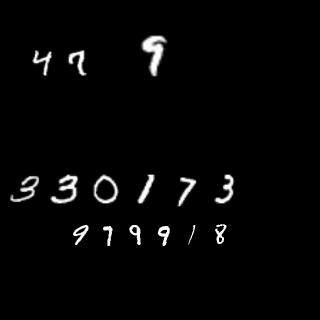 47 9
330173
979918